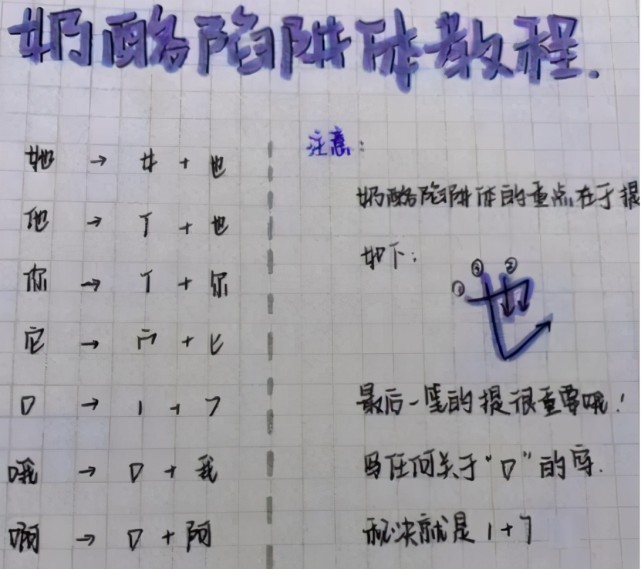 奶酪陷阱体教程.
她 → 女 + 也
他 → 亻 + 也
你 → 亻 + 尔
它 → 宀 + 匕
口 → 丨 + ㄱ
哦 → 口 + 我
啊 → 口 + 阿
注意:
奶酪陷阱体的重点在于提
如下:
① ③ ②
也
最后一笔的提很重要哦!
写任何关于“口”的字.
秘决就是 丨+ㄱ